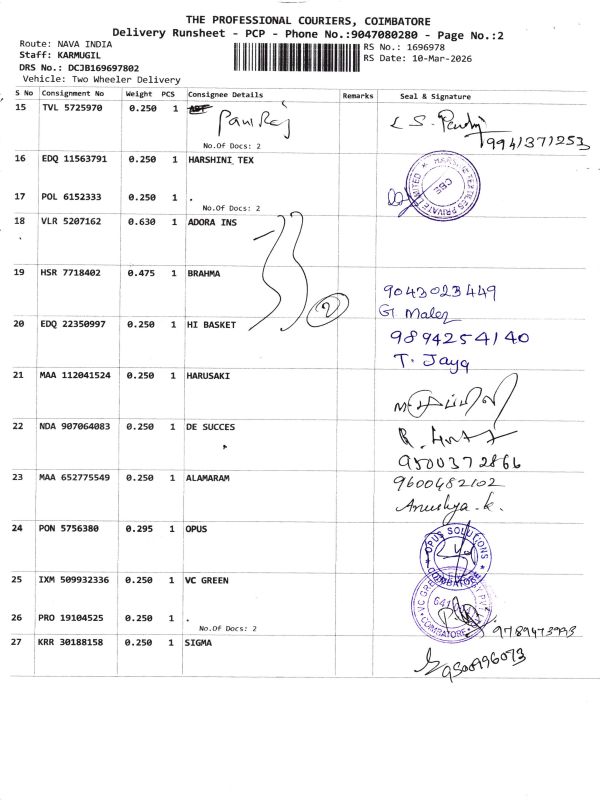 THE PROFESSIONAL COURIERS, COIMBATORE
Delivery Runsheet - PCP - Phone No.:9047080280 - Page No.:2
Route: NAVA INDIA
Staff: KARMUGIL
DRS No.: DCJB169697802
Vehicle: Two Wheeler Delivery
RS No.: 1696978
RS Date: 10-Mar-2026
S No Consignment No Weight PCS Consignee Details Remarks Seal & Signature
15 TVL 5725970 0.250 1 Paul Raj
No.Of Docs: 2
9941371253
16 EDQ 11563791 0.250 1 HARSHINI TEX
17 POL 6152333 0.250 1 .
No.Of Docs: 2
CBE
18 VLR 5207162 0.630 1 ADORA INS
19 HSR 7718402 0.475 1 BRAHMA
2
9043023449
20 EDQ 22350997 0.250 1 HI BASKET
9894254140
T. Jaya
21 MAA 112041524 0.250 1 HARUSAKI
22 NDA 907064083 0.250 1 DE SUCCES
9500372866
23 MAA 652775549 0.250 1 ALAMARAM
9600482102
Anushya.k.
24 PON 5756380 0.295 1 OPUS
OPUS SOLUTIONS
COIMBATORE
25 IXM 509932336 0.250 1 VC GREEN
26 PRO 19104525 0.250 1 .
No.Of Docs: 2
COIMBATORE
9789473993
27 KRR 30188158 0.250 1 SIGMA
9500996073